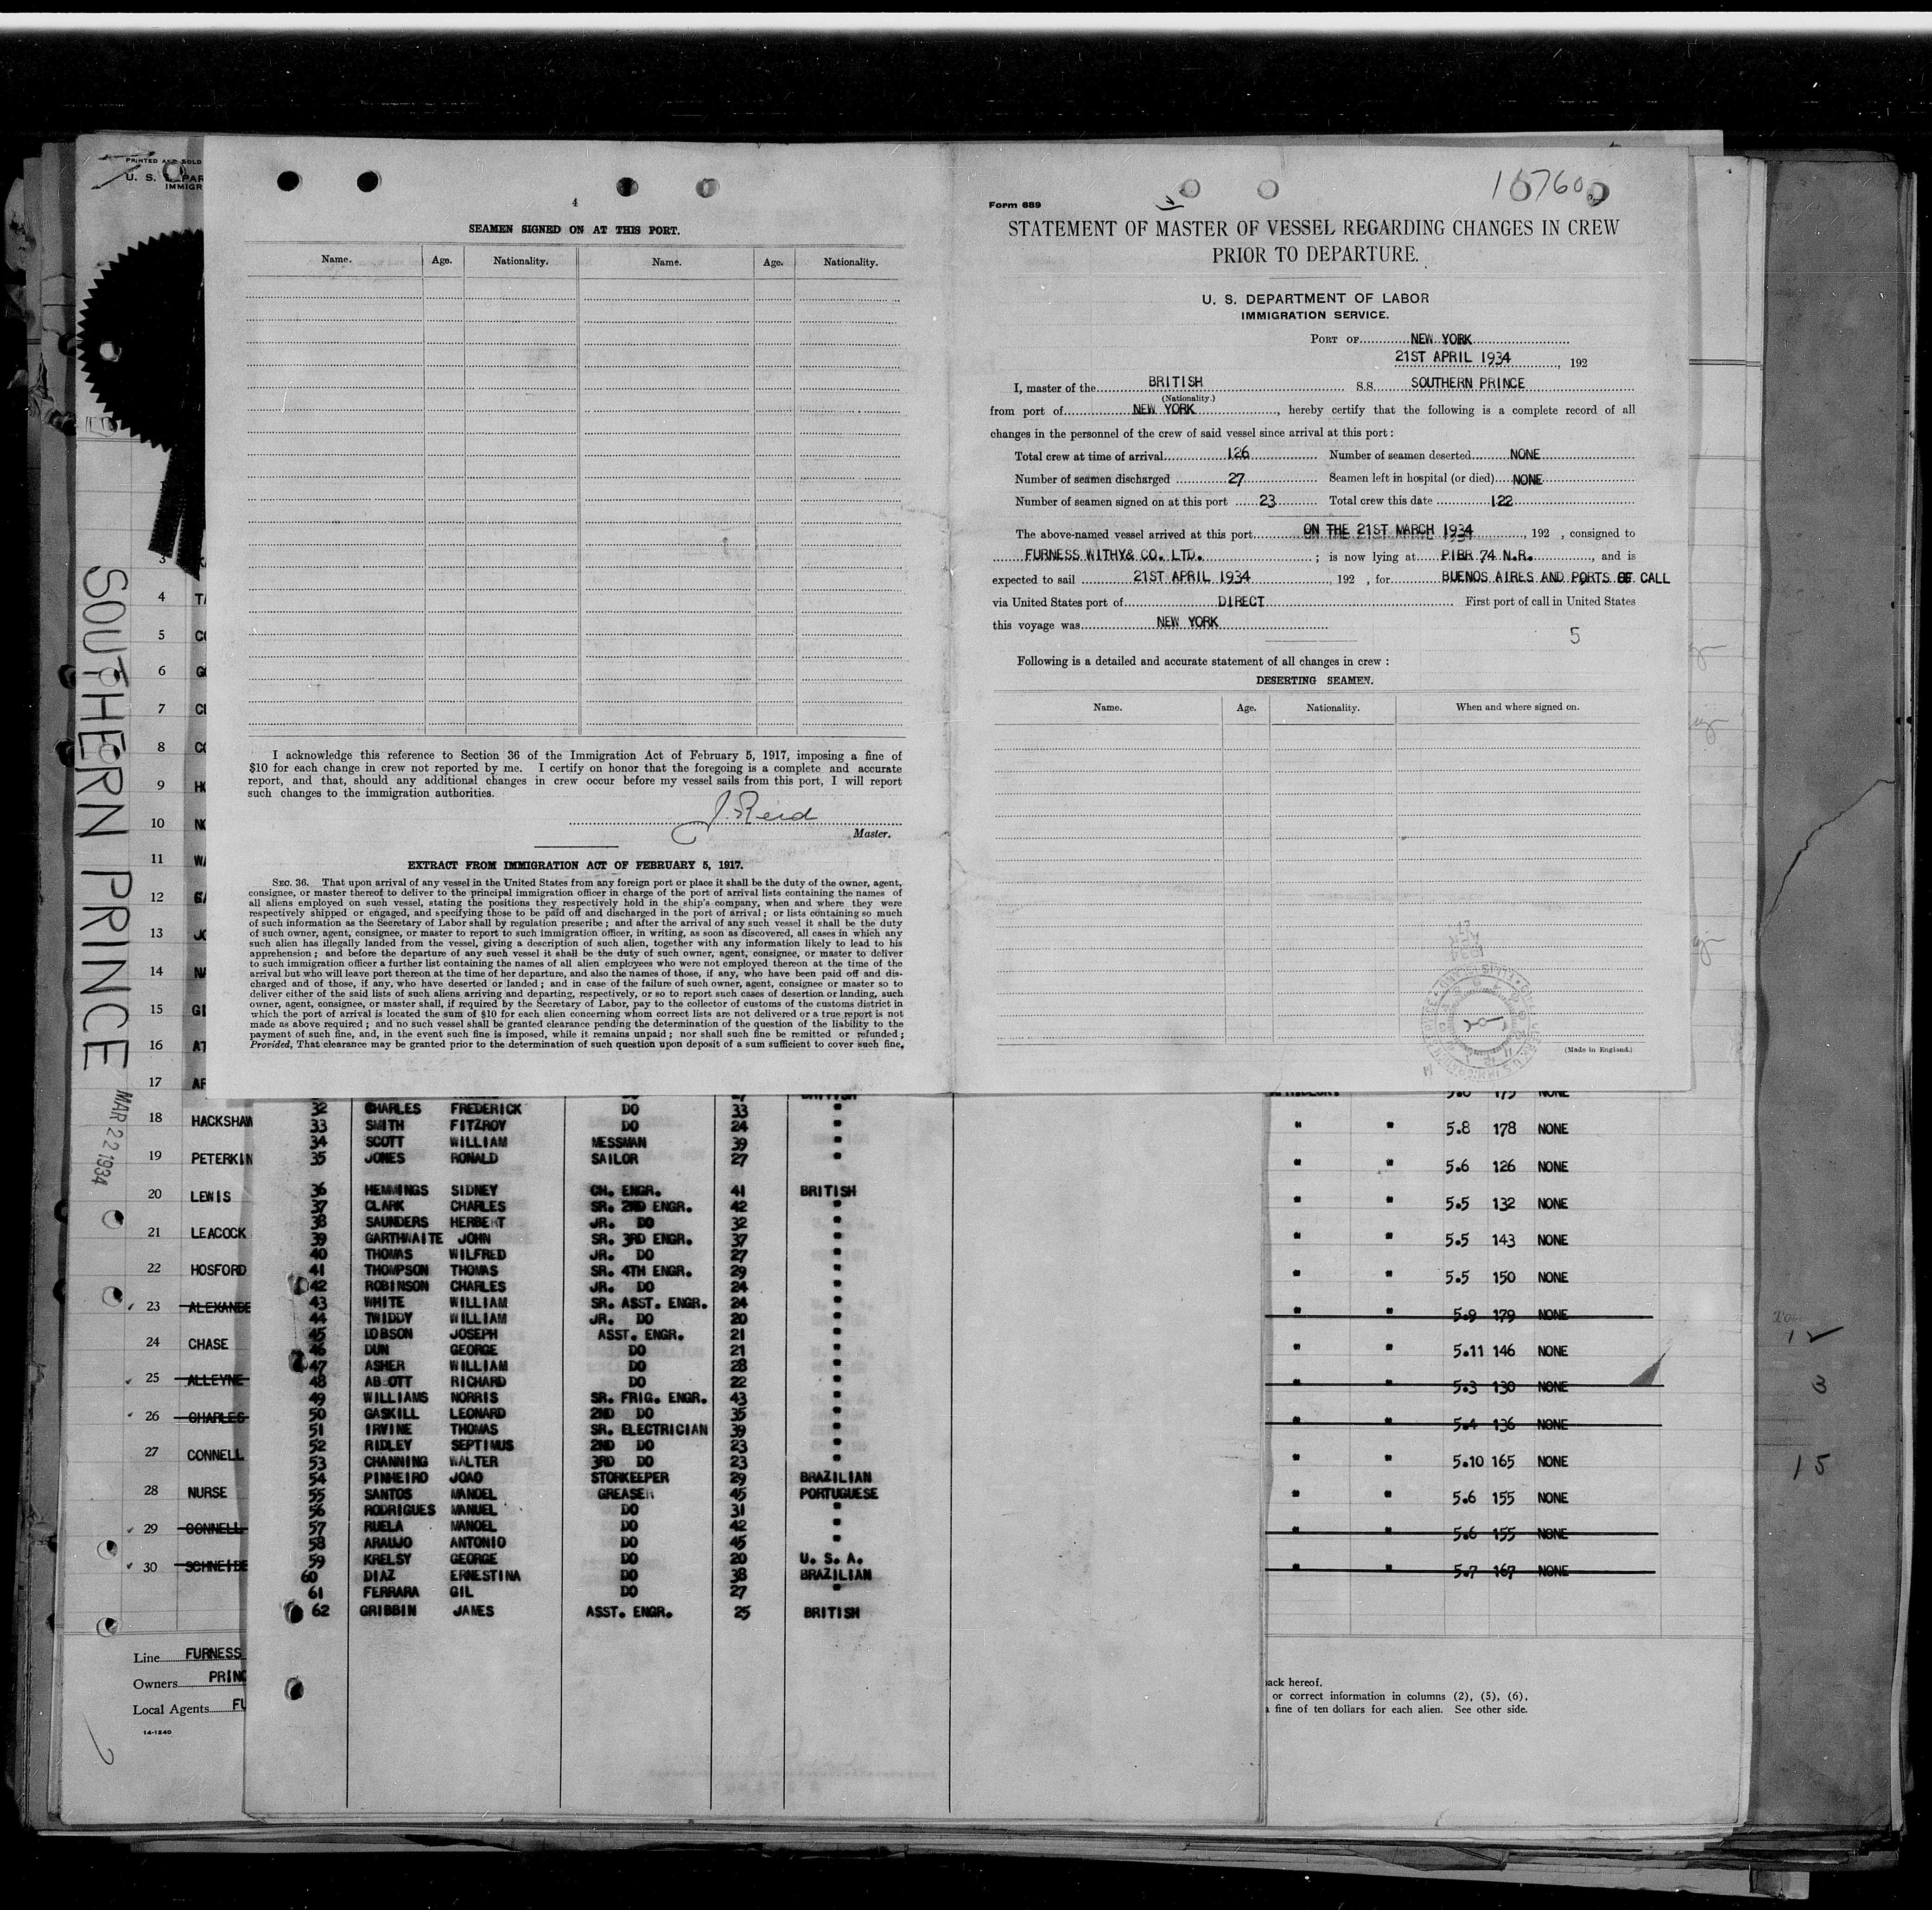 PRINTED AND SOLD
U. S.
IMMIGR
SOUTHERN PRINCE
MAR 22 1934
4
SEAMEN SIGNED ON AT THIS PORT.
Name. Age. Nationality. Name. Age. Nationality.
I acknowledge this reference to Section 36 of the Immigration Act of February 5, 1917, imposing a fine of
$10 for each change in crew not reported by me. I certify on honor that the foregoing is a complete and accurate
report, and that, should any additional changes in crew occur before my vessel sails from this port, I will report
such changes to the immigration authorities.
J. Reid
Master.
EXTRACT FROM IMMIGRATION ACT OF FEBRUARY 5, 1917.
SEC. 36. That upon arrival of any vessel in the United States from any foreign port or place it shall be the duty of the owner, agent,
consignee, or master thereof to deliver to the principal immigration officer in charge of the port of arrival lists containing the names of
all aliens employed on such vessel, stating the positions they respectively hold in the ship's company, when and where they were
respectively shipped or engaged, and specifying those to be paid off and discharged in the port of arrival; or lists containing so much
of such information as the Secretary of Labor shall by regulation prescribe; and after the arrival of any such vessel it shall be the duty
of such owner, agent, consignee, or master to report to such immigration officer, in writing, as soon as discovered, all cases in which any
such alien has illegally landed from the vessel, giving a description of such alien, together with any information likely to lead to his
apprehension; and before the departure of any such vessel it shall be the duty of such owner, agent, consignee, or master to deliver
to such immigration officer a further list containing the names of all alien employees who were not employed thereon at the time of the
arrival but who will leave port thereon at the time of her departure, and also the names of those, if any, who have been paid off and dis-
charged and of those, if any, who have deserted or landed; and in case of the failure of such owner, agent, consignee or master so to
deliver either of the said lists of such aliens arriving and departing, respectively, or so to report such cases of desertion or landing, such
owner, agent, consignee, or master shall, if required by the Secretary of Labor, pay to the collector of customs of the customs district in
which the port of arrival is located the sum of $10 for each alien concerning whom correct lists are not delivered or a true report is not
made as above required; and no such vessel shall be granted clearance pending the determination of the question of the liability to the
payment of such fine, and, in the event such fine is imposed, while it remains unpaid; nor shall such fine be remitted or refunded;
Provided, That clearance may be granted prior to the determination of such question upon deposit of a sum sufficient to cover such fine.
Form 689
STATEMENT OF MASTER OF VESSEL REGARDING CHANGES IN CREW
PRIOR TO DEPARTURE.
U. S. DEPARTMENT OF LABOR
IMMIGRATION SERVICE.
PORT OF NEW YORK
21ST APRIL 1934, 192
I, master of the BRITISH S.S. SOUTHERN PRINCE
(Nationality.)
from port of NEW YORK, hereby certify that the following is a complete record of all
changes in the personnel of the crew of said vessel since arrival at this port:
Total crew at time of arrival 126 Number of seamen deserted NONE
Number of seamen discharged 27 Seamen left in hospital (or died) NONE
Number of seamen signed on at this port 23 Total crew this date 122
The above-named vessel arrived at this port ON THE 21ST MARCH 1934, 192 , consigned to
FURNESS WITHY& CO. LTD. ; is now lying at PIER 74 N.R., and is
expected to sail 21ST APRIL 1934, 192 , for BUENOS AIRES AND PORTS OF CALL
via United States port of DIRECT First port of call in United States
this voyage was NEW YORK
5
Following is a detailed and accurate statement of all changes in crew:
DESERTING SEAMEN.
Name. Age. Nationality. When and where signed on.
(Made in England.)
3
4
5
6
7
8
9
10
11
12
13
14
15
16
17
18 HACKSHAW
19 PETERKIN
20 LEWIS
21 LEACOCK
22 HOSFORD
23 ALEXANDE
24 CHASE
25 ALLEYNE
26 CHARLES
27 CONNELL
28 NURSE
29 CONNELL
30 SCHNEIDE
Line FURNESS
Owners PRINC
Local Agents FU
14-1240
32 CHARLES FREDERICK DO 33 "
33 SMITH FITZROY DO 24 "
34 SCOTT WILLIAM MESSMAN 39 "
35 JONES RONALD SAILOR 27 "
36 HEMMINGS SIDNEY CH. ENGR. 41 BRITISH
37 CLARK CHARLES SR. 2ND ENGR. 42 "
38 SAUNDERS HERBERT JR. DO 32 "
39 GARTHWAITE JOHN SR. 3RD ENGR. 37 "
40 THOMAS WILFRED JR. DO 27 "
41 THOMPSON THOMAS SR. 4TH ENGR. 29 "
42 ROBINSON CHARLES JR. DO 24 "
43 WHITE WILLIAM SR. ASST. ENGR. 24 "
44 TWIDDY WILLIAM JR. DO 20 "
45 LOBSON JOSEPH ASST. ENGR. 21 "
46 DUN GEORGE DO 21 "
47 ASHER WILLIAM DO 28 "
48 ABBOTT RICHARD DO 22 "
49 WILLIAMS NORRIS SR. FRIG. ENGR. 43 "
50 GASKILL LEONARD 2ND DO 35 "
51 IRVINE THOMAS SR. ELECTRICIAN 39 "
52 RIDLEY SEPTIMUS 2ND DO 23 "
53 CHANNING WALTER 3RD DO 23 "
54 PINHEIRO JOAO STOREKEEPER 29 BRAZILIAN
55 SANTOS MANOEL GREASER 45 PORTUGUESE
56 RODRIGUES MANUEL DO 31 "
57 RUELA MANOEL DO 42 "
58 ARAUJO ANTONIO DO 45 "
59 KRELSY GEORGE DO 20 U. S. A.
60 DIAZ ERNESTINA DO 38 BRAZILIAN
61 FERRARA GIL DO 27 "
62 GRIBBIN JAMES ASST. ENGR. 25 BRITISH
" " 5.8 178 NONE
" " 5.6 126 NONE
" " 5.5 132 NONE
" " 5.5 143 NONE
" " 5.5 150 NONE
" " 5.9 179 NONE
" " 5.11 146 NONE
" " 5.3 130 NONE
" " 5.4 136 NONE
" " 5.10 165 NONE
" " 5.6 155 NONE
" " 5.6 155 NONE
" " 5.7 167 NONE
back hereof.
or correct information in columns (2), (5), (6),
a fine of ten dollars for each alien. See other side.
12
3
15